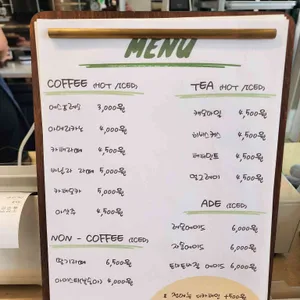 MENU
COFFEE (HOT/ICED)
에스프레소 3,000원
아메리카노 4,000원
카페라떼 4,500원
바닐라 라떼 5,000원
카페모카 5,000원
아샷추 4,500원
NON - COFFEE (ICED)
딸기라떼 6,500원
아이스티(복숭아) 4,000원
TEA (HOT/ICED)
캐모마일 4,500원
히비스커스 4,500원
페퍼민트 4,500원
얼그레이 4,500원
ADE (ICED)
레몬에이드 6,000원
자몽에이드 6,000원
에이드 6,000원
+500원